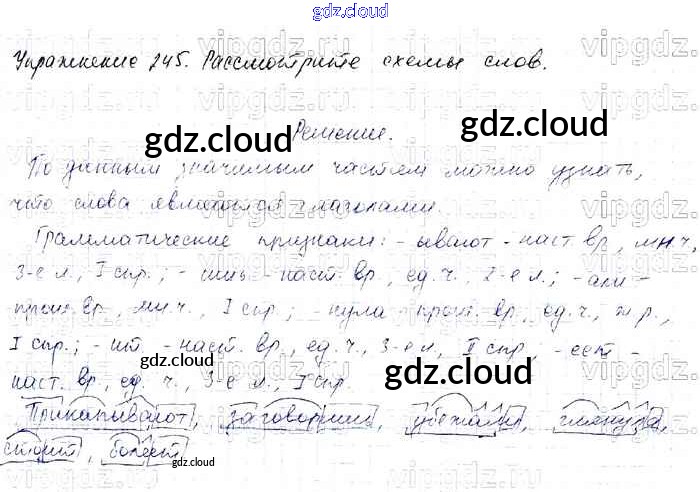 gdz.cloud
Упражнение 245. Рассмотрите схемы слов.
gdz.cloud
gdz.cloud
Решение.
По данным значимым частям можно узнать,
что слова являются глаголами.
Грамматические признаки: -ывают - наст. вр., мн.ч.,
3-е л., I спр.; - наст. вр., ед. ч., 2-е л.; -али -
прош. вр., мн.ч., I спр.; -нула - прош. вр., ед. ч., ж.р.,
I спр.; -ит - наст. вр., ед. ч., 3-е л., II спр.; -еет -
наст. вр., ед. ч., 3-е л., I спр.
gdz.cloud
gdz.cloud
Прикапывают, заговоришь, убежали, глянула,
стоит, болеет
gdz.cloud
gdz.cloud